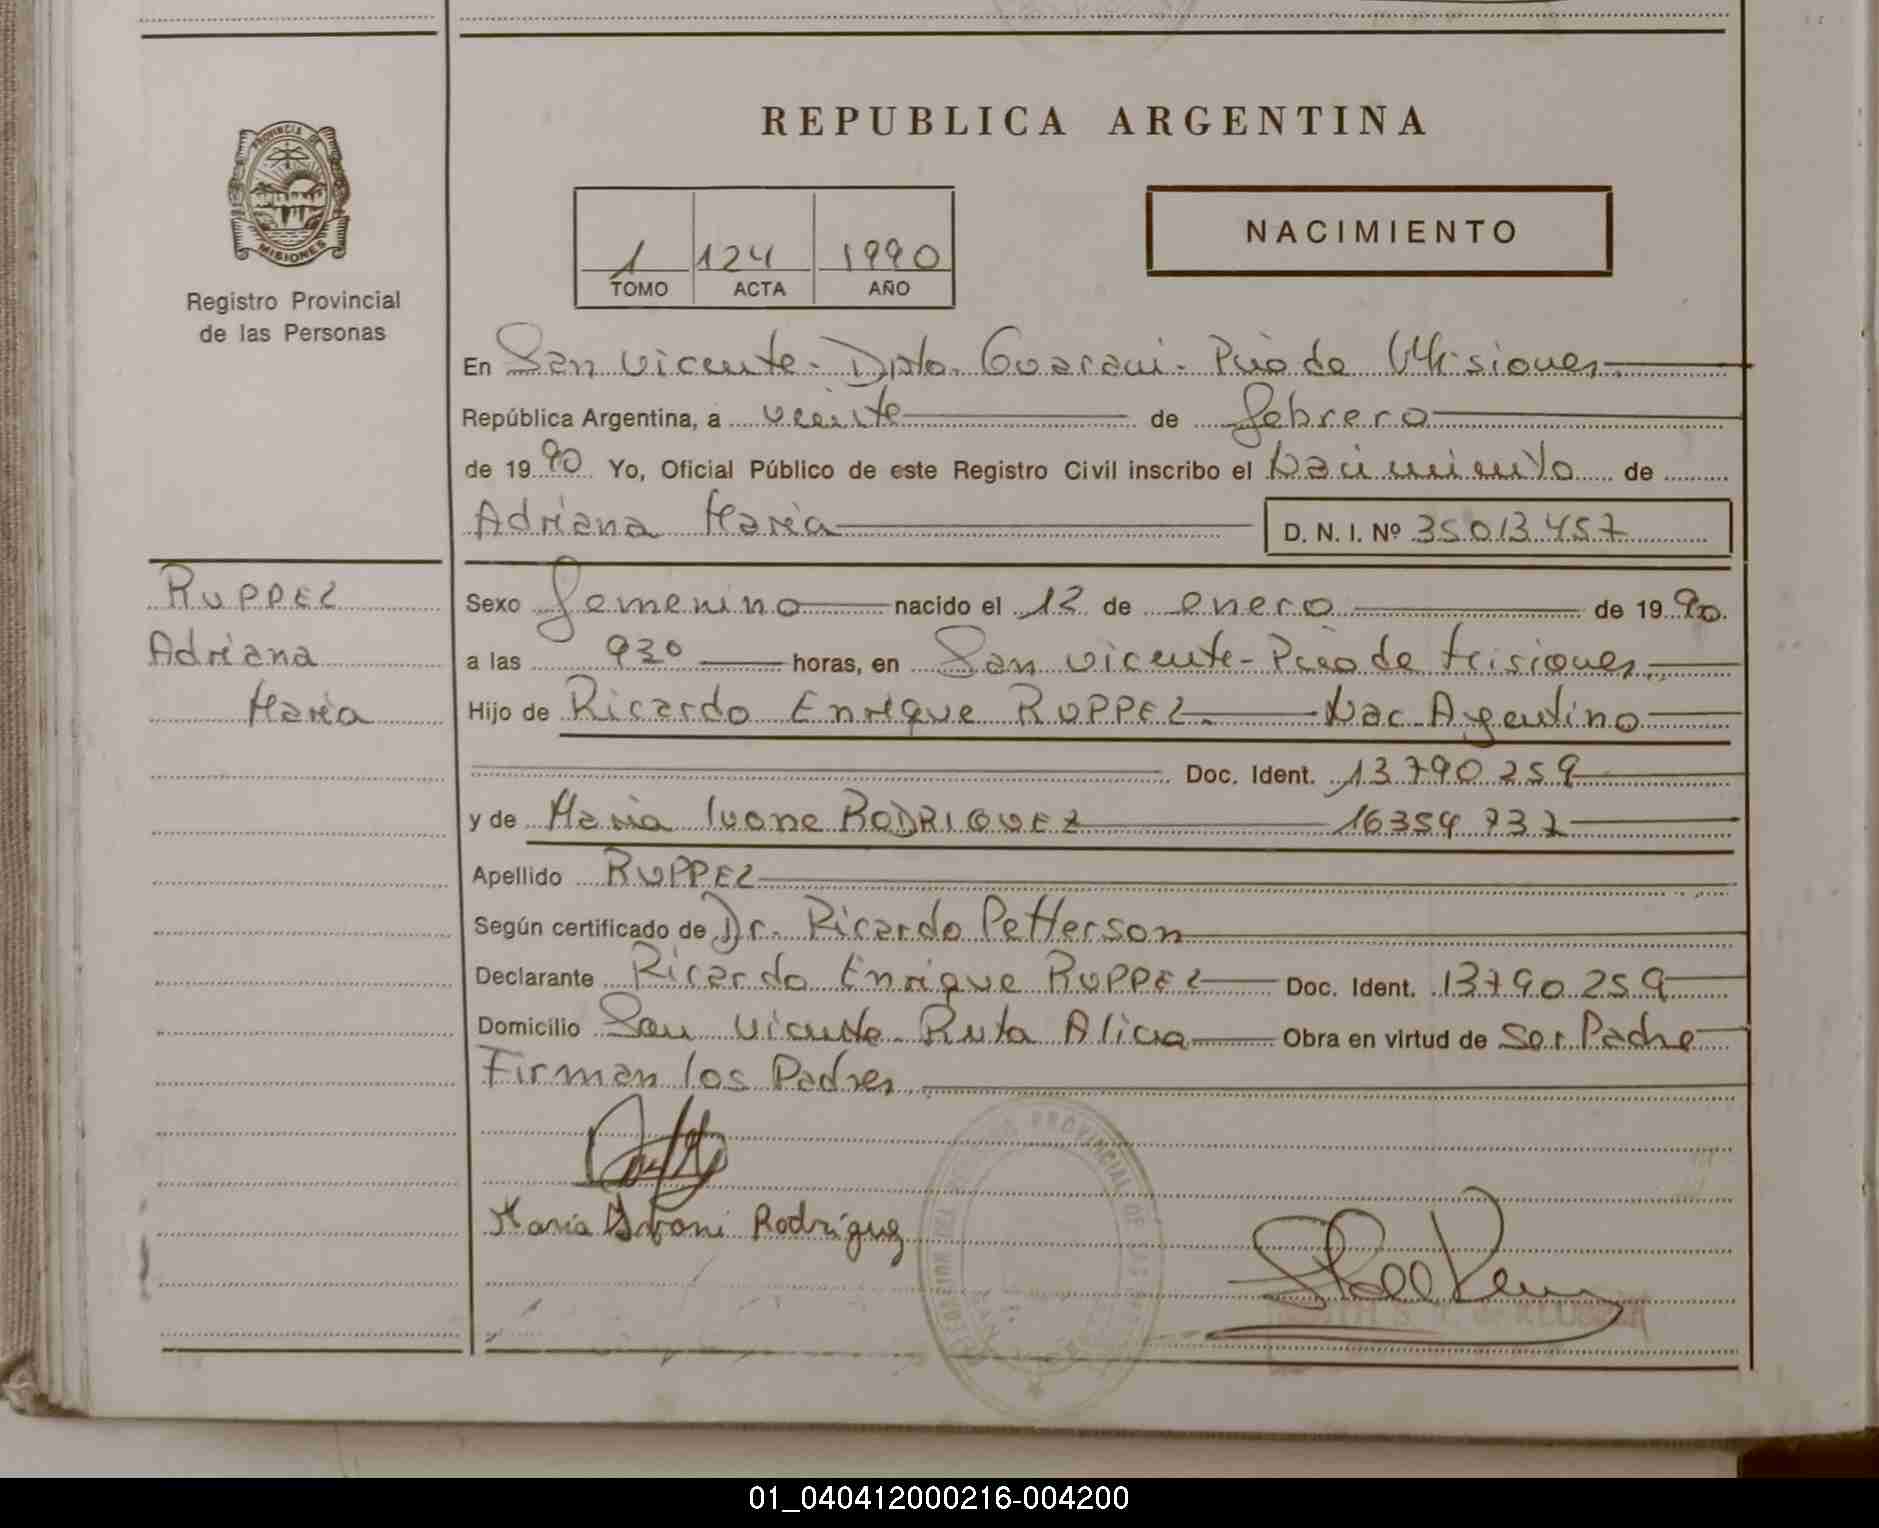 REPUBLICA ARGENTINA
PROVINCIA DE
MISIONES
Registro Provincial
de las Personas
1 124 1990
TOMO ACTA AÑO
NACIMIENTO
En San Vicente - Dpto. Guarani - Pcia de Misiones
República Argentina, a veinte de febrero
de 1990 Yo, Oficial Público de este Registro Civil inscribo el Nacimiento de
Adriana Maria D. N. I. Nº 35.013.457
RUPPEL
Adriana
Maria
Sexo femenino nacido el 12 de enero de 1990.
a las 930 horas, en San Vicente - Pcia de Misiones
Hijo de Ricardo Enrique RUPPEL. Nac. Argentino
Doc. Ident. 13.790.259
y de Maria Ivone RODRIGUEZ 16354.737
Apellido RUPPEL
Según certificado de Dr. Ricardo Petterson
Declarante Ricardo Enrique RUPPEL Doc. Ident. 13790259
Domicilio San Vicente Ruta Alicia Obra en virtud de Ser Padre
Firman los Padres
Maria Ivoni Rodriguez
PROVINCIAL DE LAS
01_040412000216-004200